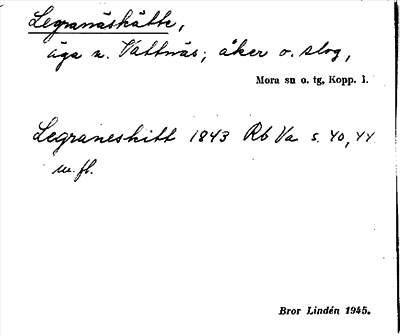 Legranäskätte,
äga n. Vattnäs; åker o. slog,
Mora sn o. tg, Kopp. l.
Legraneskitt 1843 Rb Va s. 40, 44
m. fl.
Bror Lindén 1945.